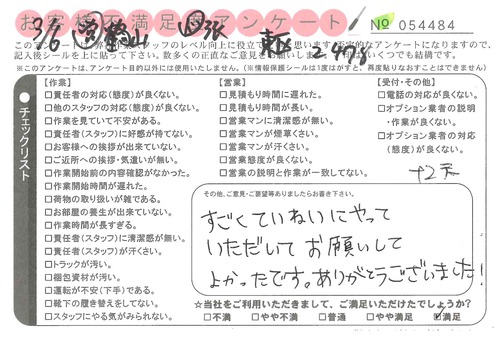 お客様不満足度アンケート
№ 054484
3/6
記入後シールを上に貼って下さい。数多くの正直なご意見をお願いします
いくつでも結構です。
※このアンケートは、アンケート目的以外には使用いたしません。(※情報保護シールは1度はがすと、再度貼りなおすことはできません)
チェックリスト
【作業】
□責任者の対応(態度)が良くない。
□他のスタッフの対応(態度)が良くない。
□作業を見ていて不安がある。
□責任者(スタッフ)に好感が持てない。
□お客様への挨拶が出来ていない。
□ご近所への挨拶・気遣いが無い。
□作業開始前の内容確認がなかった。
□作業開始時間が遅れた。
□荷物の取り扱いが雑である。
□お部屋の養生が出来ていない。
□作業時間が長すぎる。
□責任者(スタッフ)に清潔感が無い。
□責任者(スタッフ)が汗くさい。
□トラックが汚い。
□梱包資材が汚い。
□運転が不安(下手)である。
□靴下の履き替えをしてない。
□スタッフにやる気がみられない。
【営業】
□見積もり時間に遅れた。
□見積もり時間が長い。
□営業マンに清潔感が無い。
□営業マンが煙草くさい。
□営業マンが汗くさい。
□営業態度が良くない。
□営業の説明と作業が一致してない。
【受付・その他】
□電話の対応が良くない。
□オプション業者の説明
・作業が良くない。
□オプション業者の対応
(態度)が良くない。
+2点
その他、ご意見・ご要望等ありましたらお書き下さい。
すごくていねいにやって
いただいてお願いして
よかったです。ありがとうございました!
☆当社をご利用いただきまして、ご満足いただけたでしょうか?
□不満 □やや不満 □普通 □やや満足 ☑満足